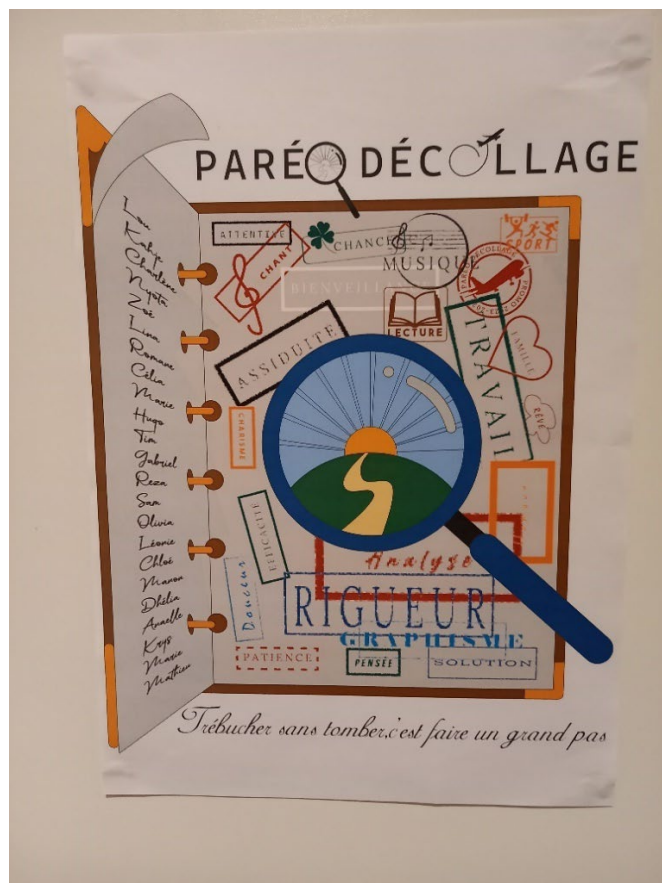 PARÉO DÉCOLLAGE
Lou
Charlène
Zoé
Lina
Romane
Célia
Marie
Hugo
Tim
Gabriel
Reza
Sam
Olivia
Léonie
Chloé
Manon
Dhélia
Annelle
Marie
Mathieu
ATTENTIVE
CHANT
CHANCE
MUSIQUE
SPORT
BIENVEILLANCE
LECTURE
PARÉO DÉCOLLAGE
ASSIDUITE
TRAVAIL
FAMILLE
RÊVE
CHARISME
EFFICACITE
Analyse
Douceur
RIGUEUR
GRAPHISME
PATIENCE
PENSÉE
SOLUTION
Trébucher sans tomber,c'est faire un grand pas